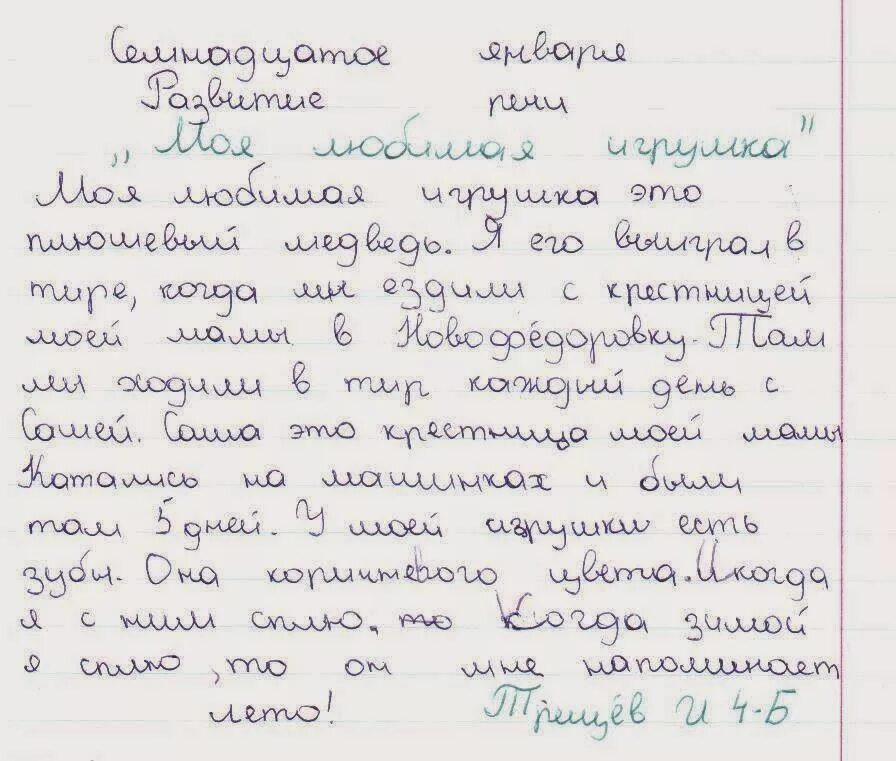 Семнадцатое января
Развитие речи
„Моя любимая игрушка"
Моя любимая игрушка это
плюшевый медведь. Я его выиграл в
тире, когда мы ездили с крестницей
моей мамы в Новофёдоровку. Там
мы ходили в тир каждый день с
Сашей. Саша это крестница моей мамы
Катались на машинках и были
там 5 дней. У моей игрушки есть
зубы. Она коричневого цвета. И когда
я с ним сплю. то Когда зимой
я сплю, то он мне напоминает
лето! Трещёв И 4-Б